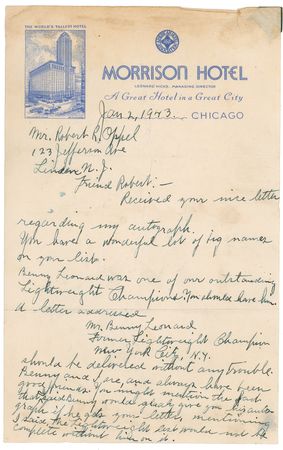 THE WORLD'S TALLEST HOTEL
MORRISON HOTEL
LEONARD HICKS, MANAGING DIRECTOR
A Great Hotel in a Great City
Jan 2, 1943. CHICAGO
Mr. Robert R. Oppel
123 Jefferson Ave
Linden N.J.
Friend Robert:-
Received your nice letter
regarding my autograph.
You have a wonderful lot of big names
on your list.
Benny Leonard was one of our outstanding
Lightweight Champions. You should have him.
A letter addressed
Mr. Benny Leonard
Former Lightweight Champion
New York City, N.Y.
should be delivered without any trouble.
Benny and I are, and always have been
good friends. You might mention the fact
that I said Benny would gladly give you his auto-
graph if he gets your letter, mentioning
I said, the Lightweight list would not be
complete without him on it.